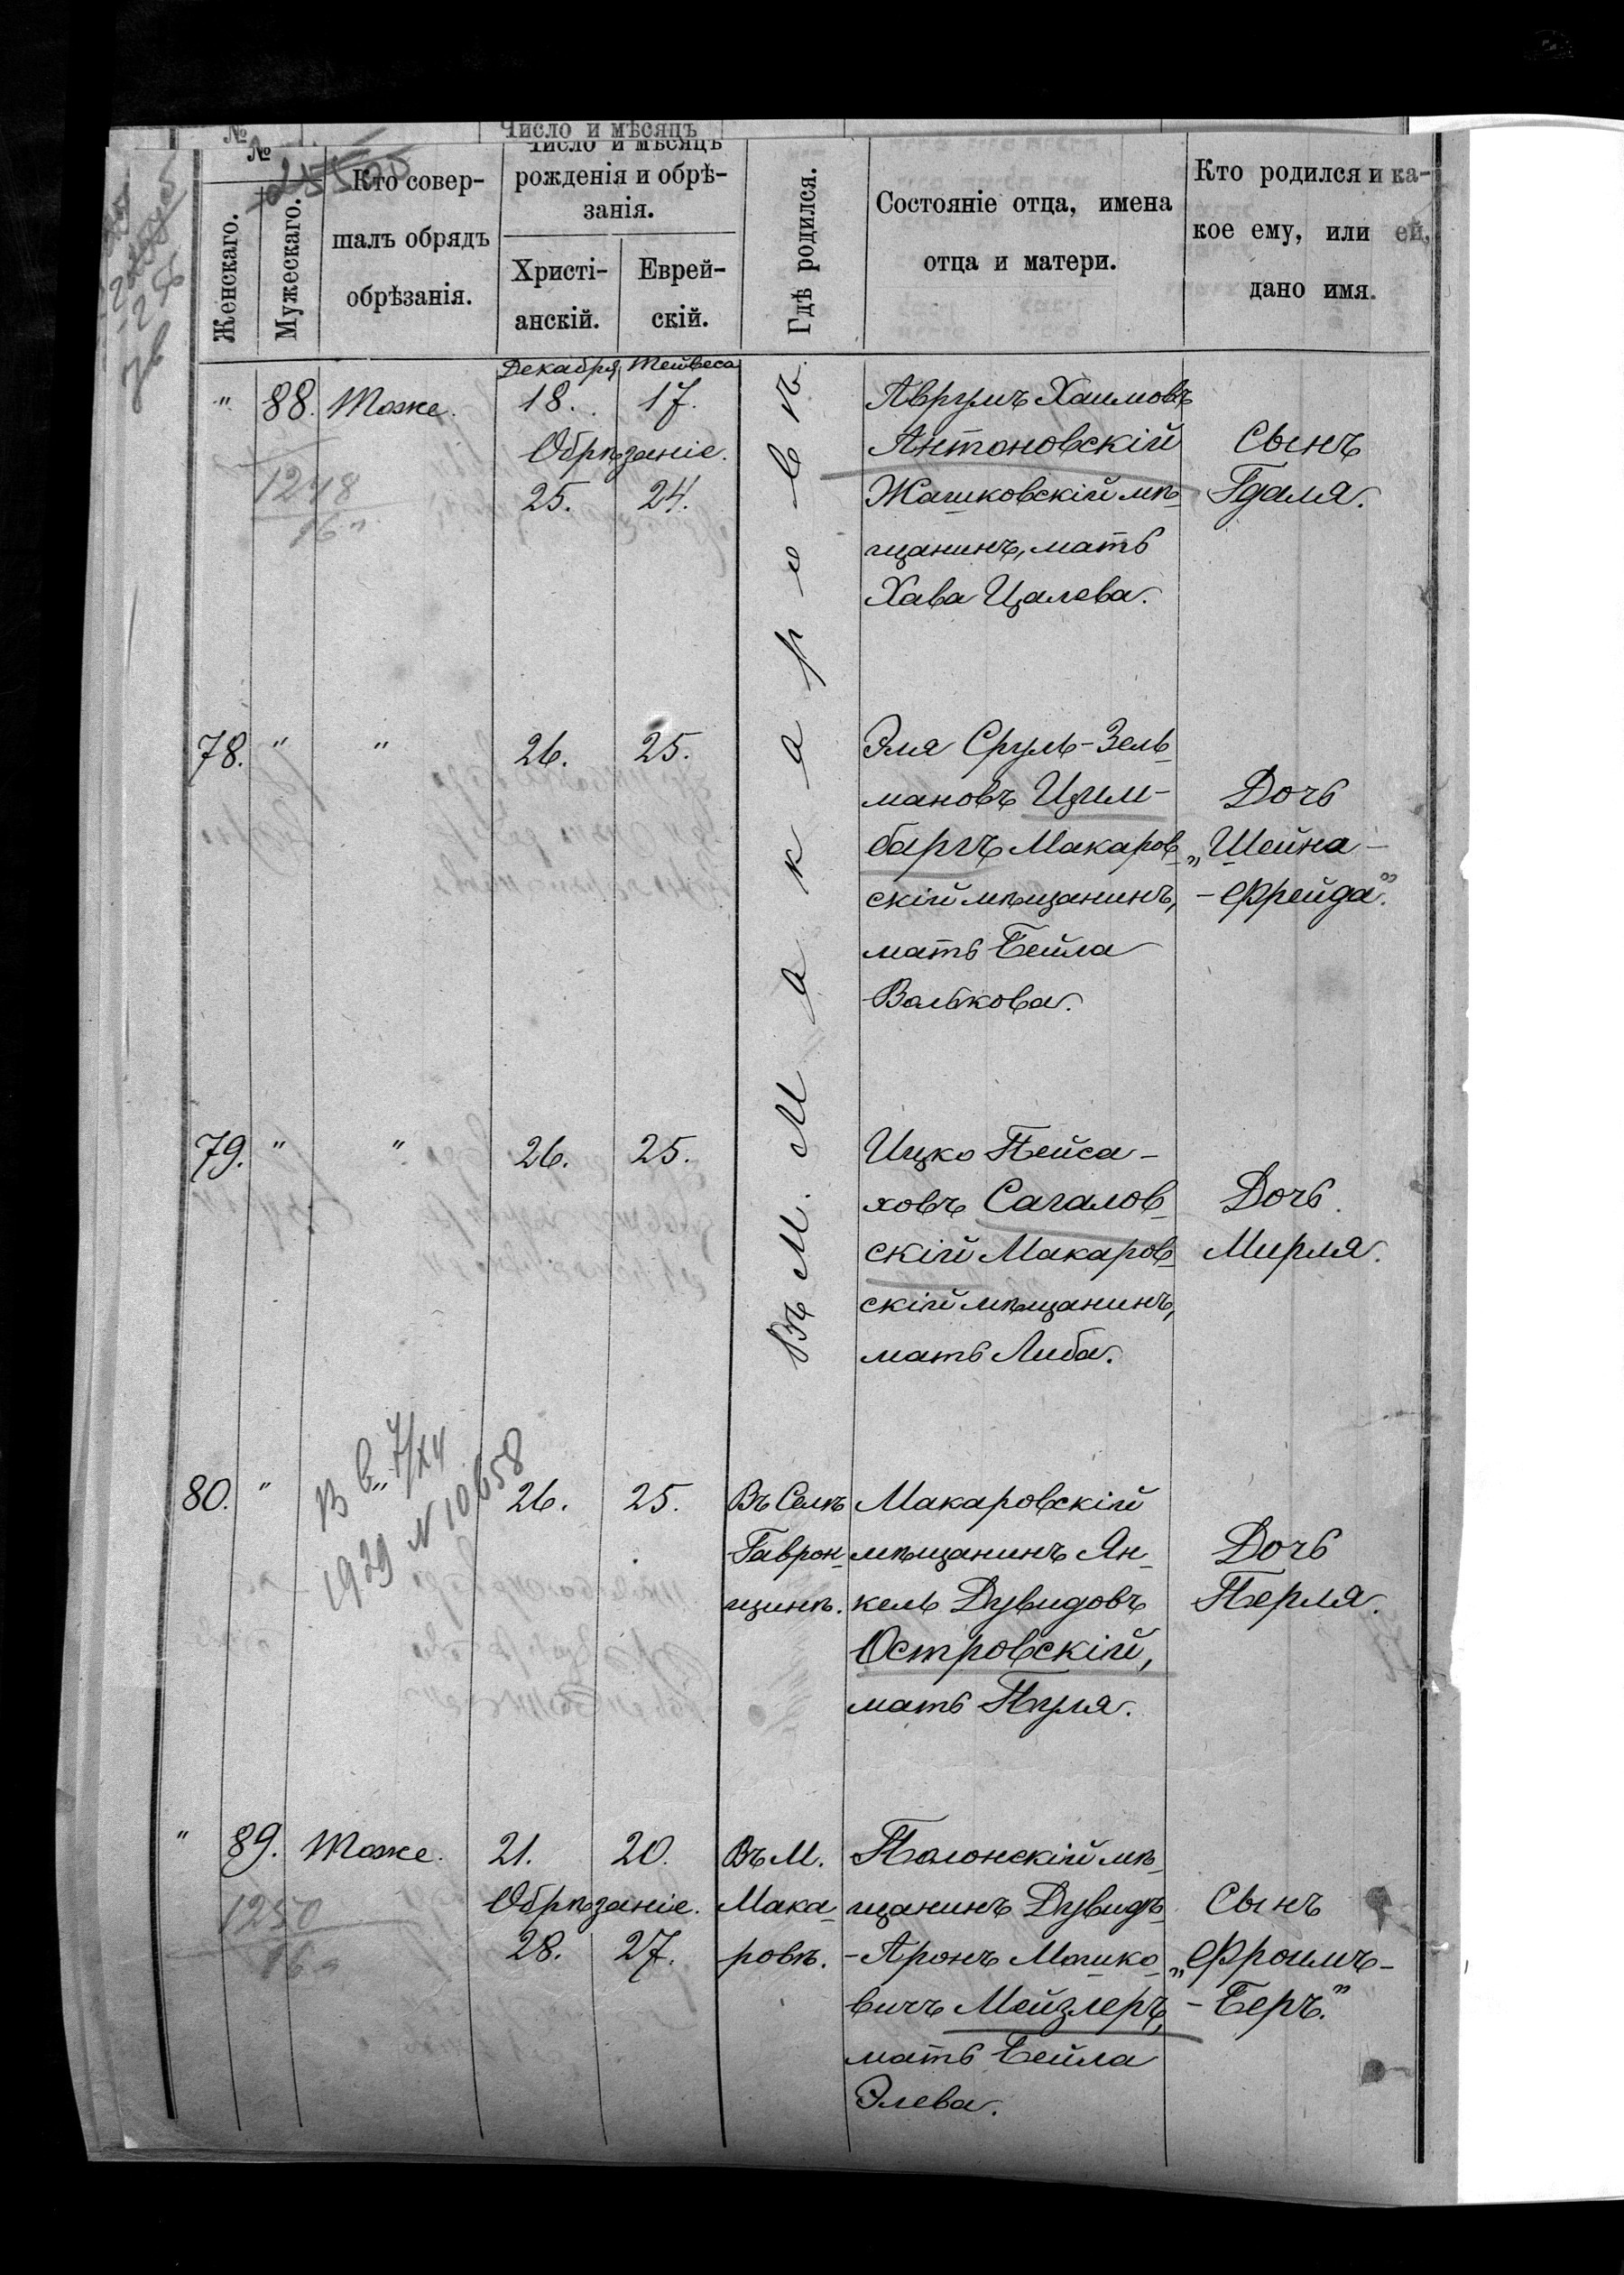 №
Число и мѣсяцъ
№
Женскаго.
Мужескаго.
Кто совер-
шалъ обрядъ
обрѣзанія.
Число и мѣсяцъ
рожденія и обрѣ-
занія.
Христі-
анскій.
Еврей-
скій.
Гдѣ родился.
Состояніе отца, имена
отца и матери.
Кто родился и ка-
кое ему, или ей,
дано имя.
Декабря Тейвеса
" 88. Тоже. 18. 17.
Обрѣзаніе.
25. 24.
1248
16
Въ М. Макаровѣ.
Аврумъ Хаимовъ
Антоновскій
Жашковскій мѣ-
щанинъ, мать
Хава Цалева.
Сынъ
Гдаля.
78. " " 26. 25.
Эля Сруль-Зель-
мановъ Цим-
баргъ Макаров-
скій мѣщанинъ,
мать Бейла
Валькова.
Дочь
„Шейна-
-Фрейда".
79. " " 26. 25.
Ицко Пейса-
ховъ Сагалов-
скій Макаров-
скій мѣщанинъ,
мать Либа.
Дочь
Мирля.
80. " " 26. 25.
В в. 7/XII
1929 N 10658
Въ Селѣ
Гаврон-
щинѣ.
Макаровскій
мѣщанинъ Ян-
кель Дувидовъ
Островскій,
мать Пуля.
Дочь
Перля.
" 89. Тоже. 21. 20.
Обрѣзаніе.
28. 27.
1250
16
Въ М.
Мака-
ровѣ.
Полонскій мѣ-
щанинъ Дувидъ-
-Аронъ Мошко-
вичъ Мейзлеръ,
мать Бейла
Элева.
Сынъ
„Фроимъ-
-Беръ."